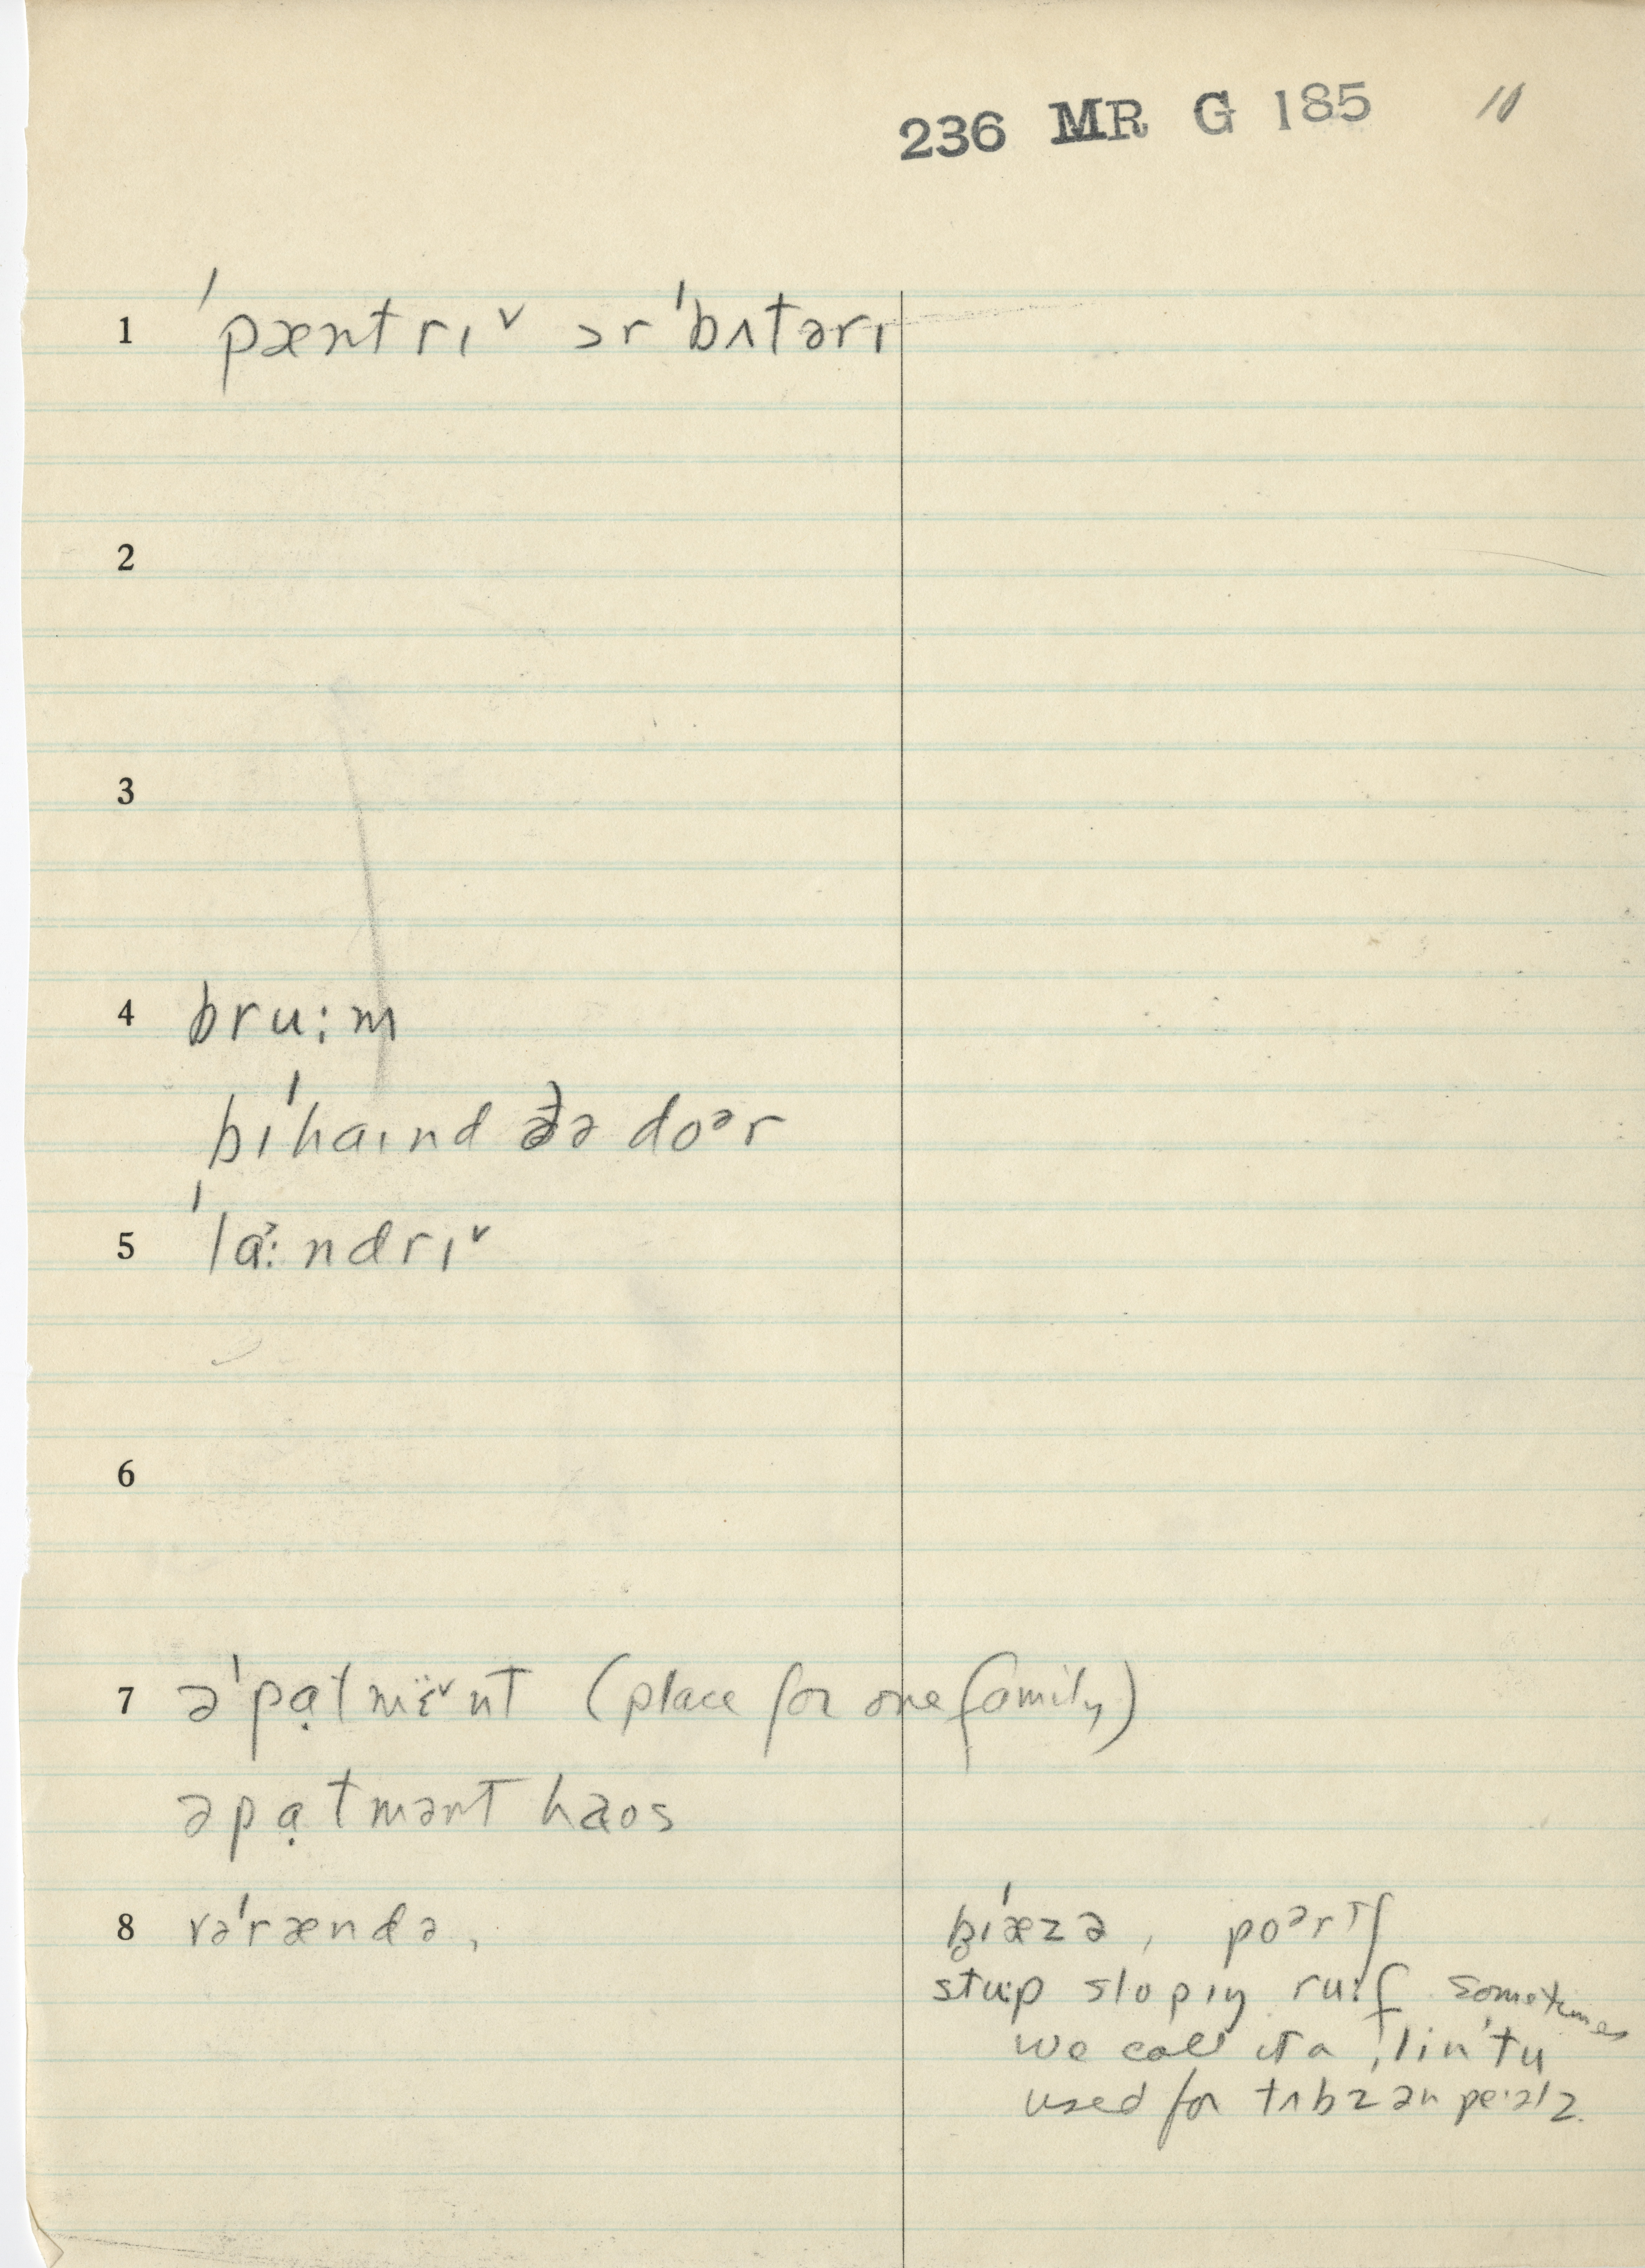 236 MR G 185 10
1 ˈpæntrɪ˅ ɔr ˈbʌtərɪ
2
3
4 bru:m
bɪˈhaɪnd ðə doᵊr
5 ˈla˃:ndrɪ˅
6
7 əˈpạtmɨ̈˅nt (place for one family)
əpạtmənt haos
8 vəˈrændə, pɪˈæzə, poᵊrtʃ
stu:p slopɪŋ ru:f sometimes
we call ɪt a ˌlinˈtu
used for tʌbz ən pe·əlz.